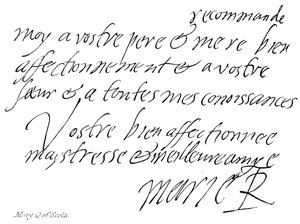 recommande
moy a vostre pere & mere bien
affectionnemẽnt & a vostre
sœur & a toutes mes conoissances
Vostre bien affectionnee
maystresse & meilleure amye
Marie R
Mary Q of Scots.